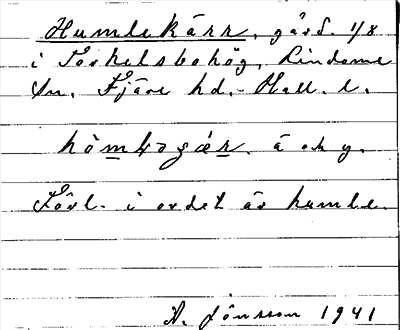 Humlekärr, gård. 1/8
i Torkelsbohög, Lindome
sn. Fjäre hd. Hall. l.
ä och y.
Förl. i ordet är humle.
A. Jönsson 1941